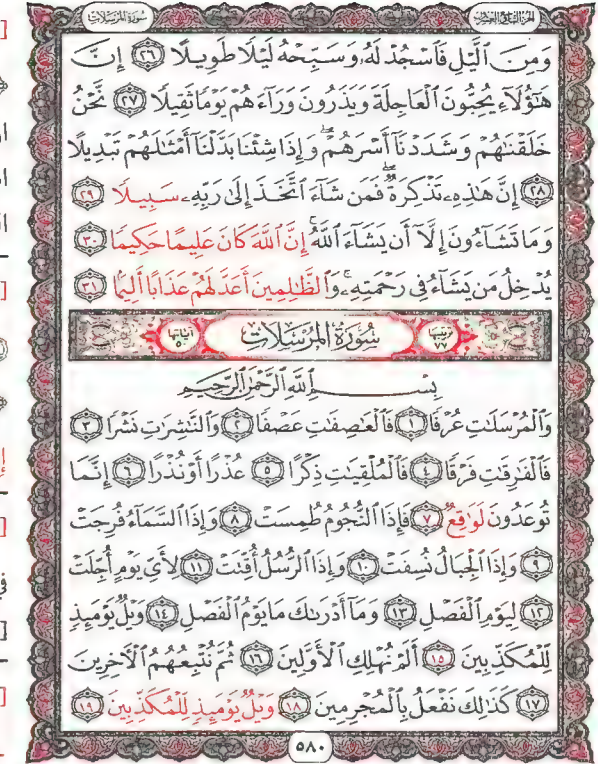 سورة المرسلات
الجزء التاسع والعشرون
وَمِنَ ٱلَّيۡلِ فَٱسۡجُدۡ لَهُۥ وَسَبِّحۡهُ لَيۡلٗا طَوِيلًا ٢٦ إِنَّ
هَٰٓؤُلَآءِ يُحِبُّونَ ٱلۡعَاجِلَةَ وَيَذَرُونَ وَرَآءَهُمۡ يَوۡمٗا ثَقِيلٗا ٢٧ نَّحۡنُ
خَلَقۡنَٰهُمۡ وَشَدَدۡنَآ أَسۡرَهُمۡۖ وَإِذَا شِئۡنَا بَدَّلۡنَآ أَمۡثَٰلَهُمۡ تَبۡدِيلًا
٢٨ إِنَّ هَٰذِهِۦ تَذۡكِرَةٞۖ فَمَن شَآءَ ٱتَّخَذَ إِلَىٰ رَبِّهِۦ سَبِيلٗا ٢٩
وَمَا تَشَآءُونَ إِلَّآ أَن يَشَآءَ ٱللَّهُۚ إِنَّ ٱللَّهَ كَانَ عَلِيمًا حَكِيمٗا ٣٠
يُدۡخِلُ مَن يَشَآءُ فِي رَحۡمَتِهِۦۚ وَٱلظَّٰلِمِينَ أَعَدَّ لَهُمۡ عَذَابًا أَلِيمَۢا ٣١
ترتيبها ٧٧ سُورَةُ المُرۡسَلَات آياتها ٥٠
بِسۡمِ ٱللَّهِ ٱلرَّحۡمَٰنِ ٱلرَّحِيمِ
وَٱلۡمُرۡسَلَٰتِ عُرۡفٗا ١ فَٱلۡعَٰصِفَٰتِ عَصۡفٗا ٢ وَٱلنَّٰشِرَٰتِ نَشۡرٗا ٣
فَٱلۡفَٰرِقَٰتِ فَرۡقٗا ٤ فَٱلۡمُلۡقِيَٰتِ ذِكۡرًا ٥ عُذۡرًا أَوۡ نُذۡرًا ٦ إِنَّمَا
تُوعَدُونَ لَوَٰقِعٞ ٧ فَإِذَا ٱلنُّجُومُ طُمِسَتۡ ٨ وَإِذَا ٱلسَّمَآءُ فُرِجَتۡ
٩ وَإِذَا ٱلۡجِبَالُ نُسِفَتۡ ١٠ وَإِذَا ٱلرُّسُلُ أُقِّتَتۡ ١١ لِأَيِّ يَوۡمٍ أُجِّلَتۡ
١٢ لِيَوۡمِ ٱلۡفَصۡلِ ١٣ وَمَآ أَدۡرَىٰكَ مَا يَوۡمُ ٱلۡفَصۡلِ ١٤ وَيۡلٞ يَوۡمَئِذٖ
لِّلۡمُكَذِّبِينَ ١٥ أَلَمۡ نُهۡلِكِ ٱلۡأَوَّلِينَ ١٦ ثُمَّ نُتۡبِعُهُمُ ٱلۡأٓخِرِينَ
١٧ كَذَٰلِكَ نَفۡعَلُ بِٱلۡمُجۡرِمِينَ ١٨ وَيۡلٞ يَوۡمَئِذٖ لِّلۡمُكَذِّبِينَ ١٩
٥٨٠